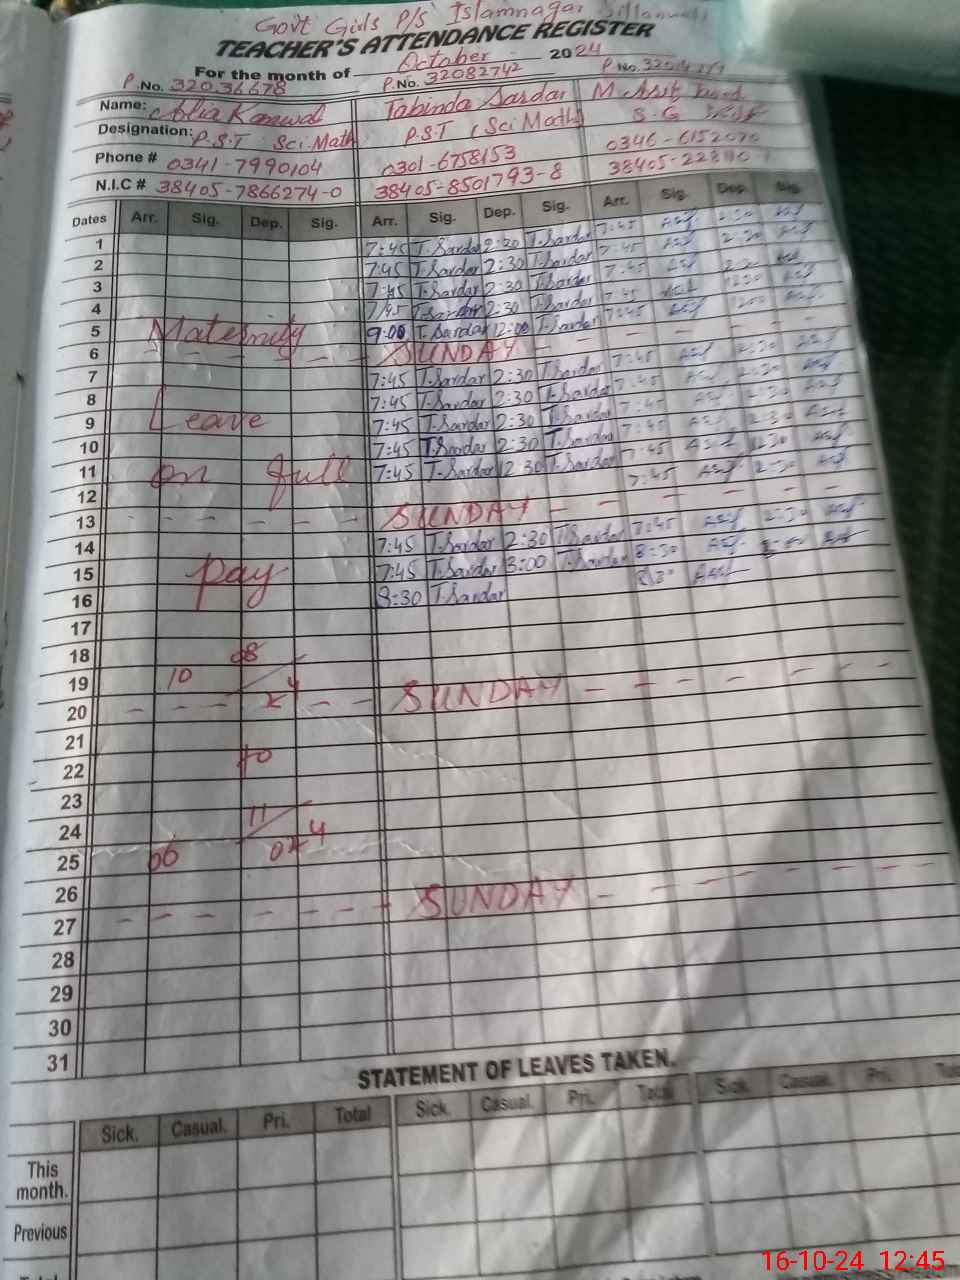 Govt Girls P/S Islamnagar Sillanwali
TEACHER'S ATTENDANCE REGISTER
For the month of October 2024
P.No. 32036678 P.No. 32082742 P No.
Name: Alia Kanwal Tabinda Sardar M Asif
Designation: P.S.T Sci Math P.S.T (Sci Math) S.G
Phone # 0341-7990104 0301-6758153 0346-6152070
N.I.C # 38405-7866274-0 38405-8501793-8 38405-
Dates Arr. Sig. Dep. Sig. Arr. Sig. Dep. Sig. Arr. Sig. Dep. Sig.
1 7:45 T.Sardar 2:30 T.Sardar 7:45 Asif 2:30 Asif
2 7:45 T.Sardar 2:30 T.Sardar 7:45 Asif 2:30 Asif
3 7:45 T.Sardar 2:30 T.Sardar 7:45 Asif 2:30 Asif
4 7:45 T.Sardar 2:30 T.Sardar 7:45 Asif 12:30 Asif
5 Maternity 9:00 T.Sardar 12:00 T.Sardar 7:45 Asif 1200 Asif
6 - - - - - SUNDAY - - - - - -
7 7:45 T.Sardar 2:30 T.Sardar 7:45 Asif 2:30 Asif
8 7:45 T.Sardar 2:30 T.Sardar 7:45 Asif 2:30 Asif
9 Leave 7:45 T.Sardar 2:30 T.Sardar 7:45 Asif 2:30 Asif
10 7:45 T.Sardar 2:30 T.Sardar 7:45 Asif 2:30 Asif
11 on full 7:45 T.Sardar 12:30 T.Sardar 7:45 Asif 12:30 Asif
12 7:45 Asif 2:30 Asif
13 - - - - - SUNDAY - - - - - -
14 7:45 T.Sardar 2:30 T.Sardar 7:45 Asif 2:30 Asif
15 pay 7:45 T.Sardar 3:00 T.Sardar 8:30 Asif Asif
16 8:30 T.Sardar 8:30 Asif
17
18 08
19 10 24
20 - - - - - SUNDAY - - - - - -
21
22 to
23
24 11
25 06 024
26
27 - - - - - - SUNDAY - - - - - -
28
29
30
31
STATEMENT OF LEAVES TAKEN.
Sick. Casual. Pri. Total Sick. Casual. Pri. Total Sick. Casual. Pri.
This
month.
Previous
16-10-24 12:45